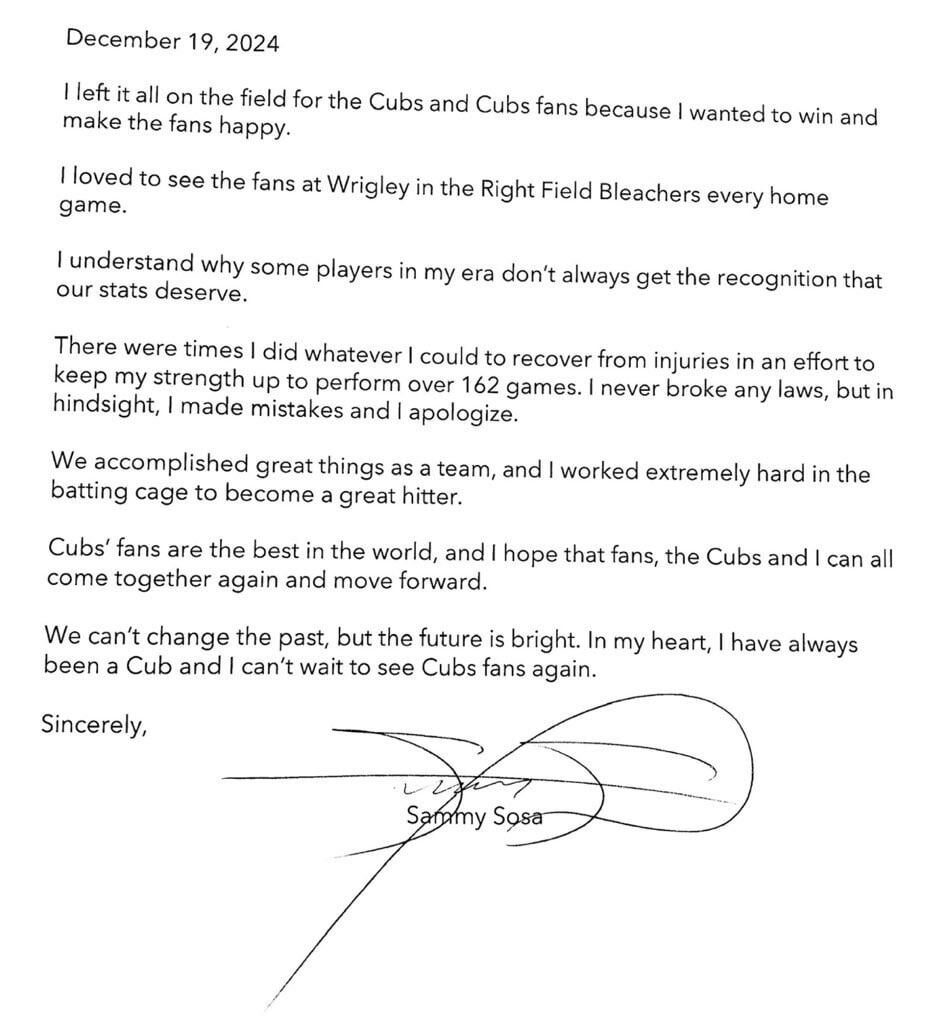 December 19, 2024
I left it all on the field for the Cubs and Cubs fans because I wanted to win and
make the fans happy.
I loved to see the fans at Wrigley in the Right Field Bleachers every home
game.
I understand why some players in my era don't always get the recognition that
our stats deserve.
There were times I did whatever I could to recover from injuries in an effort to
keep my strength up to perform over 162 games. I never broke any laws, but in
hindsight, I made mistakes and I apologize.
We accomplished great things as a team, and I worked extremely hard in the
batting cage to become a great hitter.
Cubs' fans are the best in the world, and I hope that fans, the Cubs and I can all
come together again and move forward.
We can't change the past, but the future is bright. In my heart, I have always
been a Cub and I can't wait to see Cubs fans again.
Sincerely,
Sammy Sosa